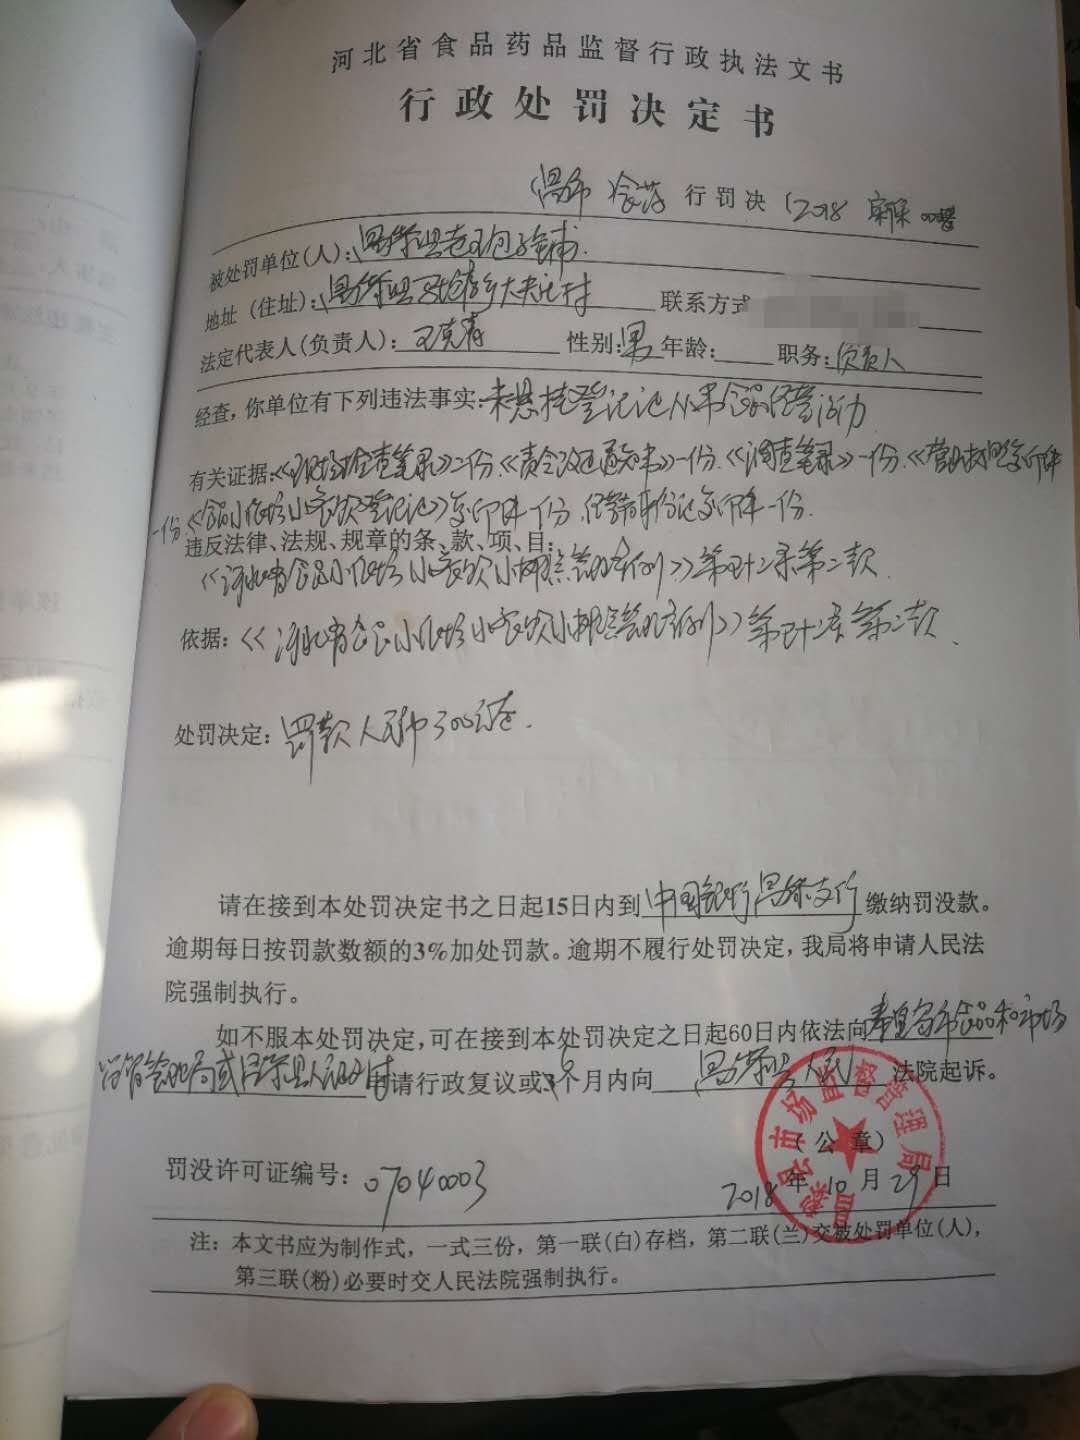 河北省食品药品监督行政执法文书
行政处罚决定书
昌市 食药 行罚决 〔2018
被处罚单位(人):昌黎县老王包子铺
地址(住址):昌黎县 乡大夫庄村 联系方式
法定代表人(负责人):王克 性别:男 年龄: 职务:负责人
经查,你单位有下列违法事实:未悬挂登记证从事食品经营活动
有关证据:《现场检查笔录》二份.《责令改正通知书》一份.《调查笔录》一份.《营业执照复印件
一份.《食品小作坊小餐饮登记证》复印件一份. 身份证复印件一份.
违反法律、法规、规章的条、款、项、目:
《河北省食品小作坊小餐饮小摊点管理条例》第五十二条第二款
依据:《河北省食品小作坊小餐饮小摊点管理条例》第五十二条第二款.
处罚决定:罚款人民币300元整.
请在接到本处罚决定书之日起15日内到中国银行昌黎支行缴纳罚没款。
逾期每日按罚款数额的3%加处罚款。逾期不履行处罚决定,我局将申请人民法
院强制执行。
如不服本处罚决定,可在接到本处罚决定之日起60日内依法向秦皇岛市食品和市场
监督管理局或昌黎县人民政府申请行政复议或 个月内向昌黎县人民法院起诉。
(公章)
罚没许可证编号:07040003
2018年10月29日
昌黎县市场监督管理局
注:本文书应为制作式,一式三份,第一联(白)存档,第二联(兰)交被处罚单位(人),
第三联(粉)必要时交人民法院强制执行。